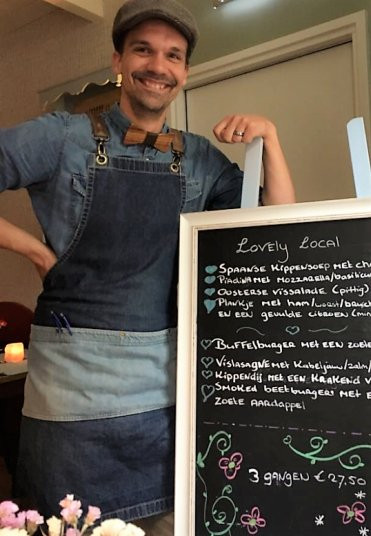 Lovely Local
Spaanse Kippensoep met
Piadina met mozzarella/basilicum
Oosterse vissalade (pittig)
Plankje met ham/worst/
en een gevulde citroen
Buffelburger met een zoete
Vislasagne met Kabeljauw/zalm/
Kippendij met een krakend
Smoked beetburger met
zoete aardappel
3 gangen € 27,50